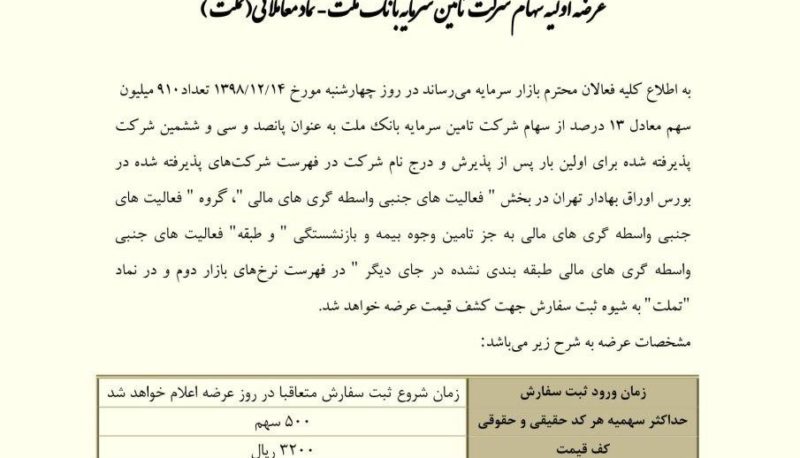 عرضه اولیه سهام شرکت تامین سرمایه بانک ملت- نماد معاملاتی (تملت)
به اطلاع کلیه فعالان محترم بازار سرمایه می‌رساند در روز چهارشنبه مورخ ۱۳۹۸/۱۲/۱۴ تعداد ۹۱۰ میلیون
سهم معادل ۱۳ درصد از سهام شرکت تامین سرمایه بانک ملت به عنوان پانصد و سی و ششمین شرکت
پذیرفته شده برای اولین بار پس از پذیرش و درج نام شرکت در فهرست شرکت‌های پذیرفته شده در
بورس اوراق بهادار تهران در بخش " فعالیت های جنبی واسطه گری های مالی "، گروه " فعالیت های
جنبی واسطه گری های مالی به جز تامین وجوه بیمه و بازنشستگی " و طبقه" فعالیت های جنبی
واسطه گری های مالی طبقه بندی نشده در جای دیگر " در فهرست نرخ‌های بازار دوم و در نماد
"تملت" به شیوه ثبت سفارش جهت کشف قیمت عرضه خواهد شد.
مشخصات عرضه به شرح زیر می‌باشد:
زمان ورود ثبت سفارش زمان شروع ثبت سفارش متعاقبا در روز عرضه اعلام خواهد شد
حداکثر سهمیه هر کد حقیقی و حقوقی ۵۰۰ سهم
کف قیمت ۳۲۰۰ ریال